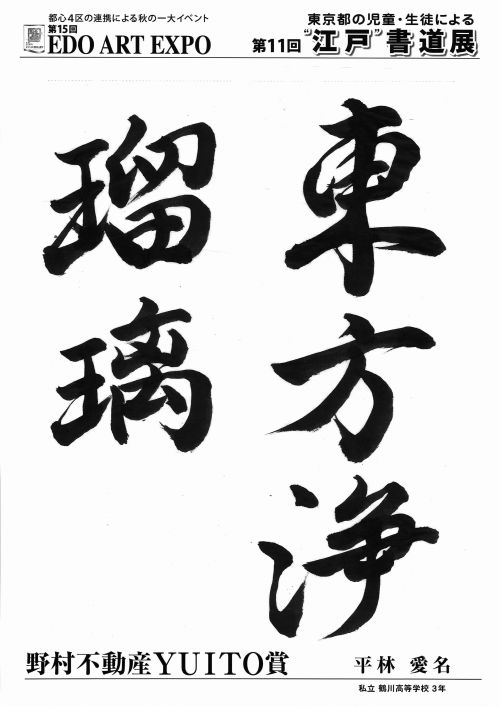 都心4区の連携による秋の一大イベント
第15回
EDO ART EXPO
東京都の児童・生徒による
第11回 “江戸”書道展
東方浄
瑠璃
野村不動産YUITO賞
平林 愛名
私立 鶴川高等学校 3年